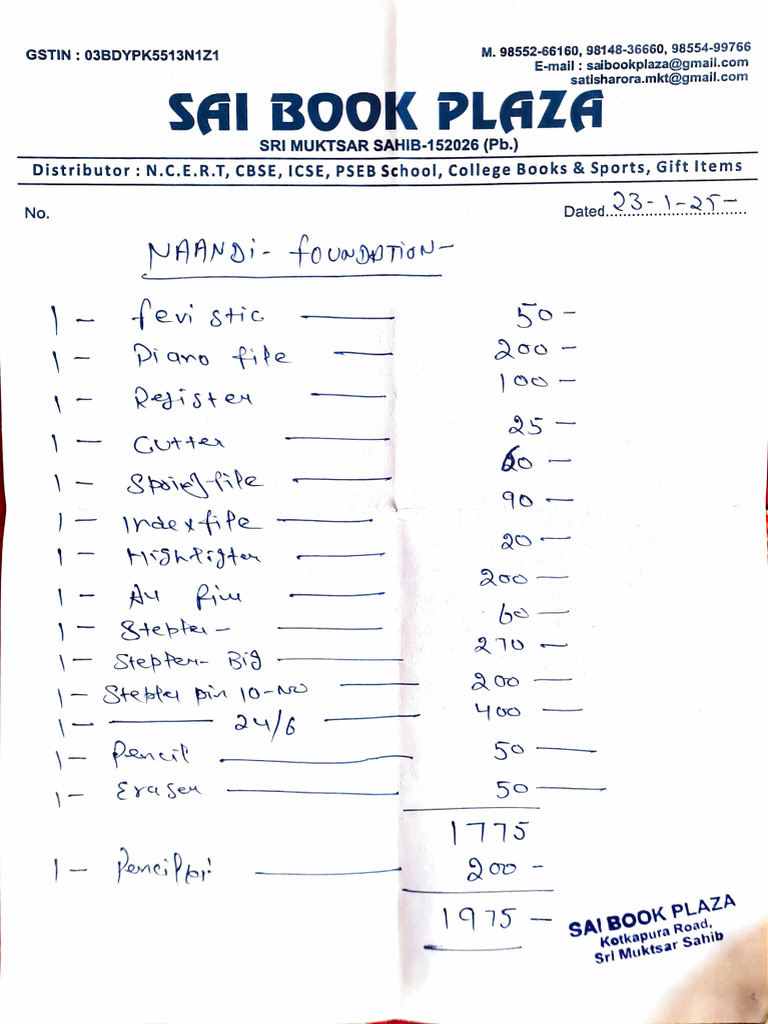 GSTIN : 03BDYPK5513N1Z1
M. 98552-66160, 98148-36660, 98554-99766
E-mail : saibookplaza@gmail.com
satisharora.mkt@gmail.com
SAI BOOK PLAZA
SRI MUKTSAR SAHIB-152026 (Pb.)
Distributor : N.C.E.R.T, CBSE, ICSE, PSEB School, College Books & Sports, Gift Items
No.
Dated 23-1-25-
NAANDi- FOUNDATION-
1 - fevi stic 50 -
1 - Piano file 200 -
1 - Register 100 -
1 - Cutter 25 -
1 - Spring file 60 -
1 - Index file 90 -
1 - Highlighter 20 -
1 - A4 Rim 200 -
1 - Stepler - 60 -
1 - Stepler - Big 270 -
1 - Stepler pin 10-No 200 -
1 - 24/6 400 -
1 - Pencil 50 -
1 - Eraser 50 -
1775
1 - Pencil 200 -
1975 -
SAI BOOK PLAZA
Kotkapura Road,
Sri Muktsar Sahib